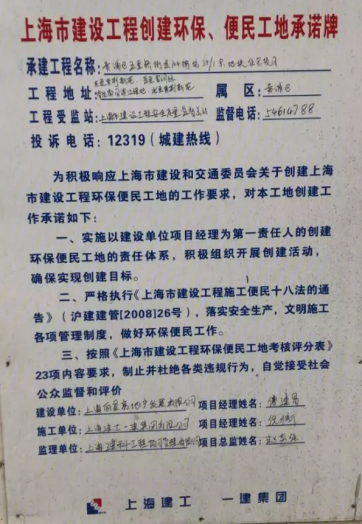 上海市建设工程创建环保、便民工地承诺牌
承建工程名称:
工程地址: 属区:
工程受监站: 监督电话: 54614788
投诉电话: 12319(城建热线)
为积极响应上海市建设和交通委员会关于创建上海
市建设工程环保便民工地的工作要求,对本工地创建工
作承诺如下:
一、实施以建设单位项目经理为第一责任人的创建
环保便民工地的责任体系,积极组织开展创建活动,
确保实现创建目标。
二、严格执行《上海市建设工程施工便民十八法的通
告》(沪建建管[2008]26号),落实安全生产,文明施工
各项管理制度,做好环保便民工作。
三、按照《上海市建设工程环保便民工地考核评分表》
23项内容要求,制止并杜绝各类违规行为,自觉接受社会
公众监督和评价
建设单位: 项目经理姓名:
施工单位: 上海建工一建集团有限公司 项目经理姓名:
监理单位: 项目总监姓名:
上海建工 一建集团